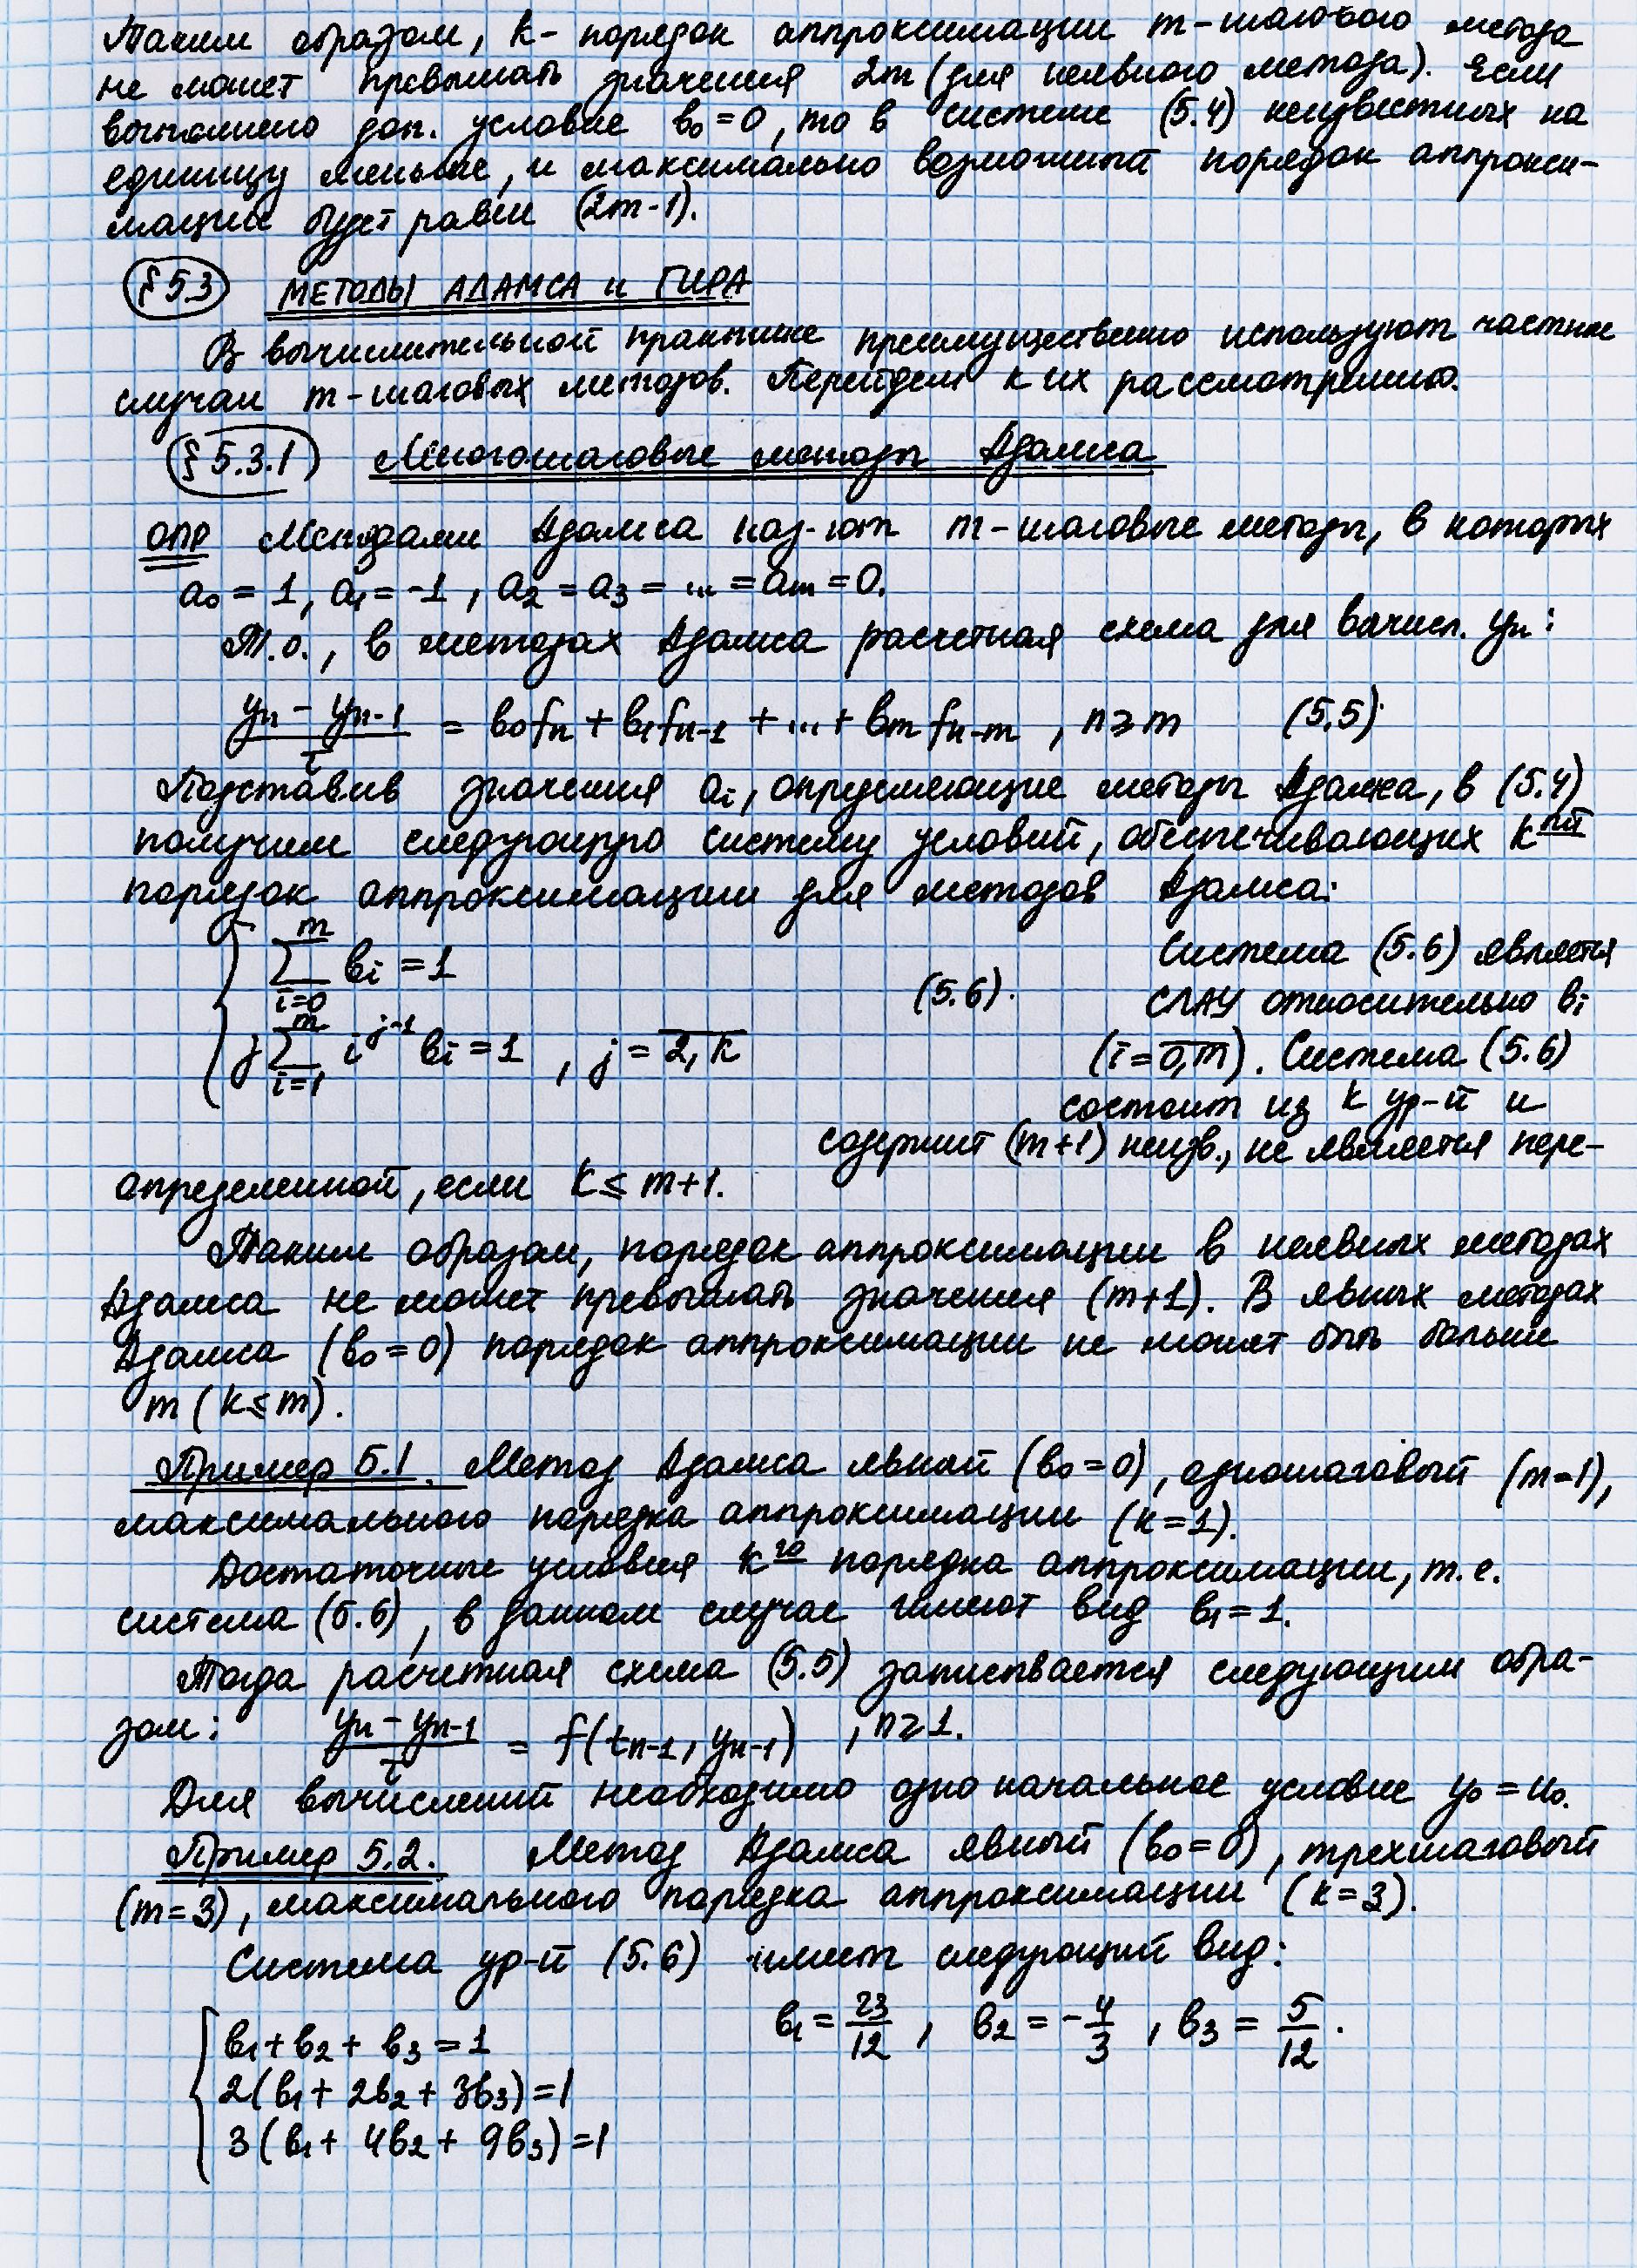 Таким образом, k- порядок аппроксимации m-шагового метода
не может превышать значения 2m (для неявного метода). Если
выполнено доп. условие b₀=0, то в системе (5.4) неизвестных на
единицу меньше, и максимально возможный порядок аппрокси-
мации будет равен (2m-1).
§ 5.3 МЕТОДЫ АДАМСА и ГИРА
В вычислительной практике преимущественно используют частные
случаи m-шаговых методов. Перейдем к их рассмотрению.
§ 5.3.1 Многошаговые методы Адамса
ОПР Методами Адамса наз-ют m-шаговые методы, в которых
a₀ = 1, a₁ = -1, a₂ = a₃ = ... = aₘ = 0.
Т.о., в методах Адамса расчетная схема для вычисл. yₙ:
(yₙ - yₙ₋₁)/τ = b₀fₙ + b₁fₙ₋₁ + ... + bₘfₙ₋ₘ , n ≥ m (5.5)
Подставив значения aᵢ, определяющие методы Адамса, в (5.4)
получим следующую систему условий, обеспечивающих kᵗʸ
порядок аппроксимации для методов Адамса:
{ ∑_{i=0}^{m} bᵢ = 1
j∑_{i=1}^{m} i^{j-1} bᵢ = 1 , j = \overline{2,k} (5.6).
Система (5.6) является
СЛАУ относительно bᵢ
(i=\overline{0,m}). Система (5.6)
состоит из k ур-й и
содержит (m+1) неизв., не является пере-
определенной, если k ≤ m+1.
Таким образом, порядок аппроксимации в неявных методах
Адамса не может превышать значения (m+1). В явных методах
Адамса (b₀=0) порядок аппроксимации не может быть больше
m (k≤m).
Пример 5.1. Метод Адамса явный (b₀=0), одношаговый (m=1),
максимального порядка аппроксимации (k=1).
Достаточные условия kго порядка аппроксимации, т.е.
система (5.6), в данном случае имеют вид b₁=1.
Тогда расчетная схема (5.5) записывается следующим обра-
зом: (yₙ - yₙ₋₁)/τ = f(tₙ₋₁, yₙ₋₁) , n≥1.
Для вычислений необходимо одно начальное условие y₀ = u₀.
Пример 5.2. Метод Адамса явный (b₀=0), трехшаговый
(m=3), максимального порядка аппроксимации (k=3).
Система ур-й (5.6) имеет следующий вид:
{ b₁+b₂+b₃=1
2(b₁+2b₂+3b₃)=1
3(b₁+4b₂+9b₃)=1
b₁ = 23/12 , b₂ = -4/3 , b₃ = 5/12 .